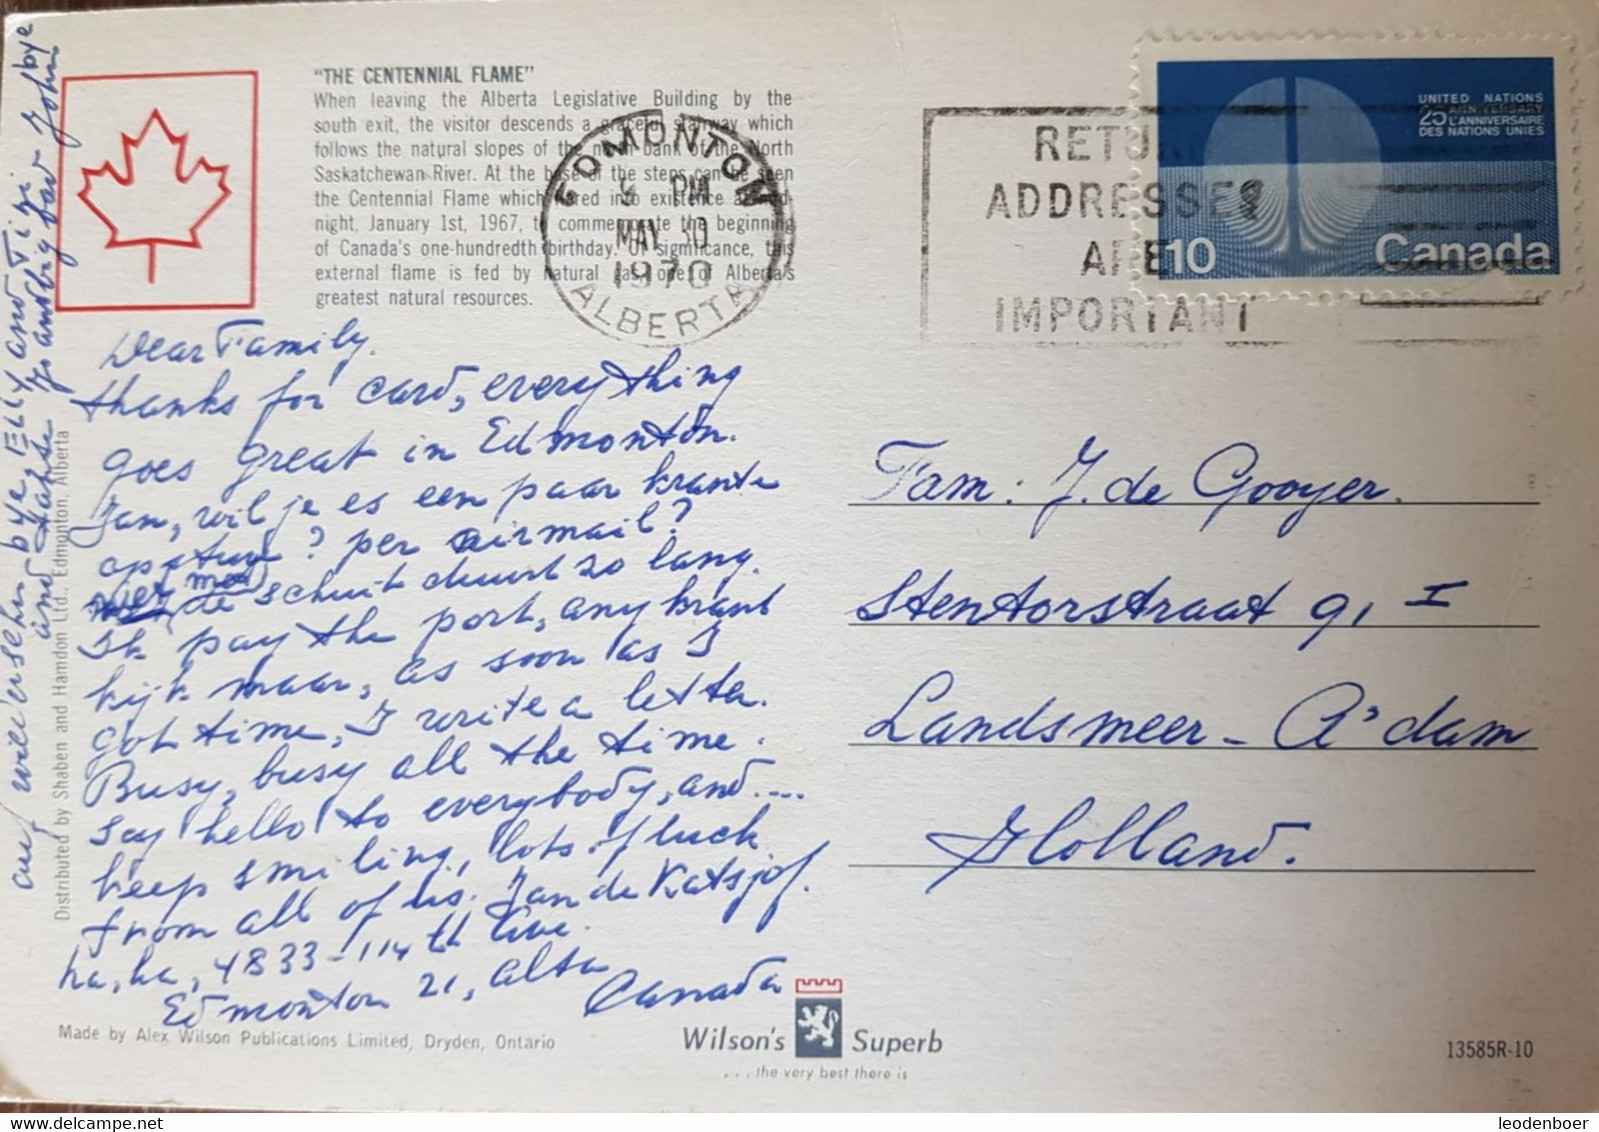 "THE CENTENNIAL FLAME"
When leaving the Alberta Legislative Building by the
south exit, the visitor descends a graceful stairway which
follows the natural slopes of the north bank of the North
Saskatchewan River. At the base of the steps can be seen
the Centennial Flame which flared into existence at mid-
night, January 1st, 1967, to commemorate the beginning
of Canada's one-hundredth birthday. Of significance, this
external flame is fed by natural gas, one of Alberta's
greatest natural resources.
EDMONTON
PM
MAY 30
1970
ALBERTA
RETURN
ADDRESSES
ARE
IMPORTANT
UNITED NATIONS
25 ANNIVERSARY
L'ANNIVERSAIRE
DES NATIONS UNIES
10 Canada
Dear Family.
thanks for card, everything
goes great in Edmonton.
Jan, wil je es een paar krante
opsture? per airmail?
(med) de schuit duurt zo lang.
Ik pay the port, any krant
kijk maar, as soon as I
got time, I write a letter.
Busy, busy all the time.
say hello to everybody, and....
keep smiling, lots of luck
from all of us. Jan de Katsjof.
ha, ha, 4833-114th Ave.
Edmonton 21, Alta
Canada
auf wiedersehn bye, Elly and Tizi
and Hansje
John bye
Fam: J. de Gooyer.
Stentorstraat 91 I
Landsmeer - A'dam
Holland.
Distributed by Shaben and Hamdon Ltd., Edmonton, Alberta
Made by Alex Wilson Publications Limited, Dryden, Ontario
Wilson's Superb
... the very best there is
13585R-10
leodenboer